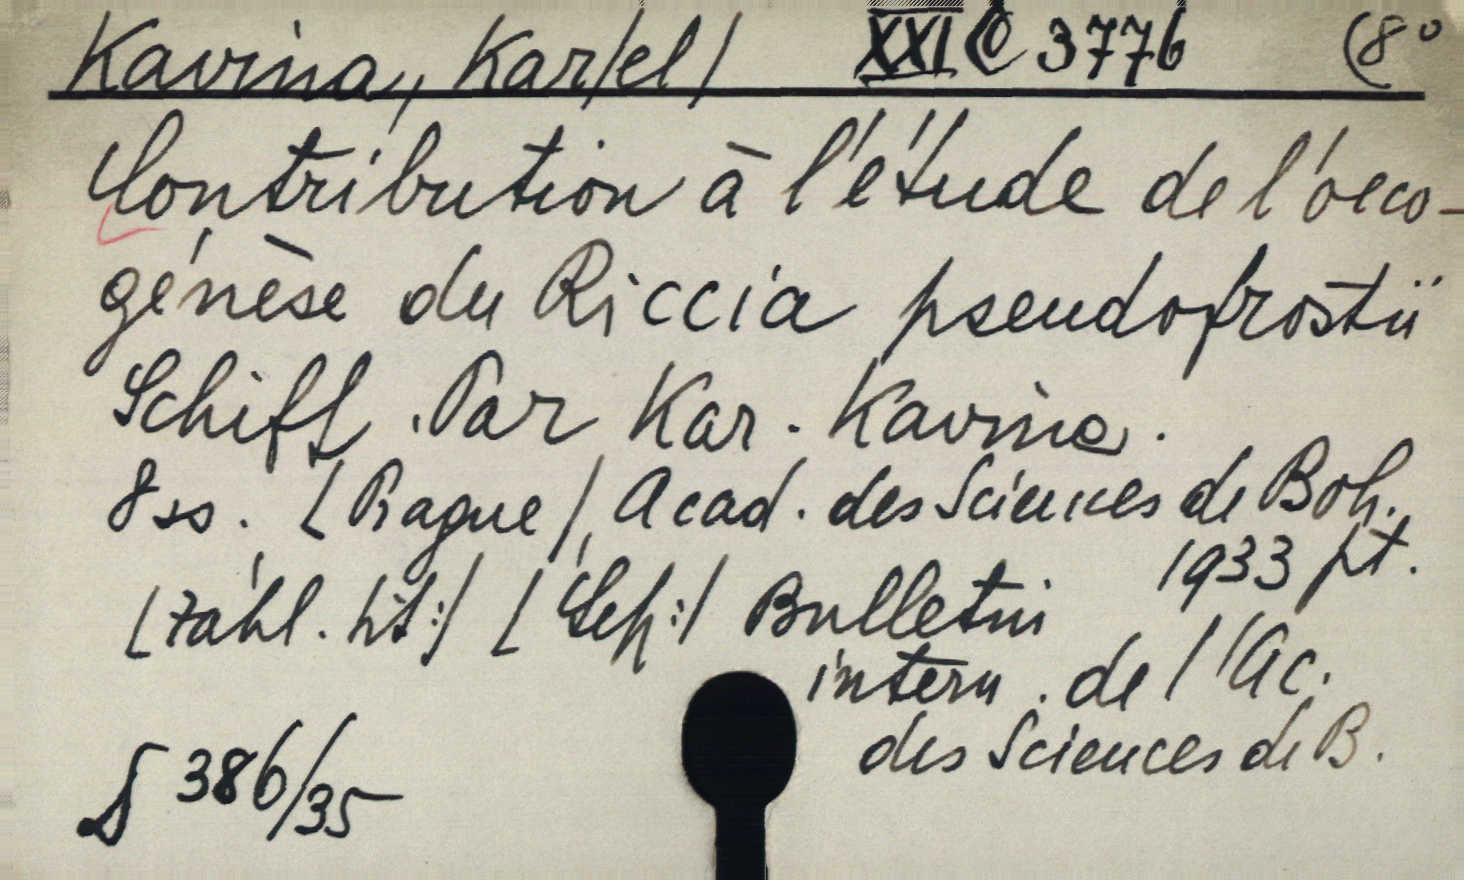 Kavina, Kar/el/ XXI C 3776 (8°
Contribution à l'étude de l'oeco-
génèse du Riccia pseudofrostii
Schiff. Par Kar. Kavina.
8 ss. [Prague/, Acad. des Sciences de Boh.
1933 pt.
[záhl. tit:/ [Sep:/ Bulletin
intern. de l'Ac.
des Sciences de B.
§ 386/35